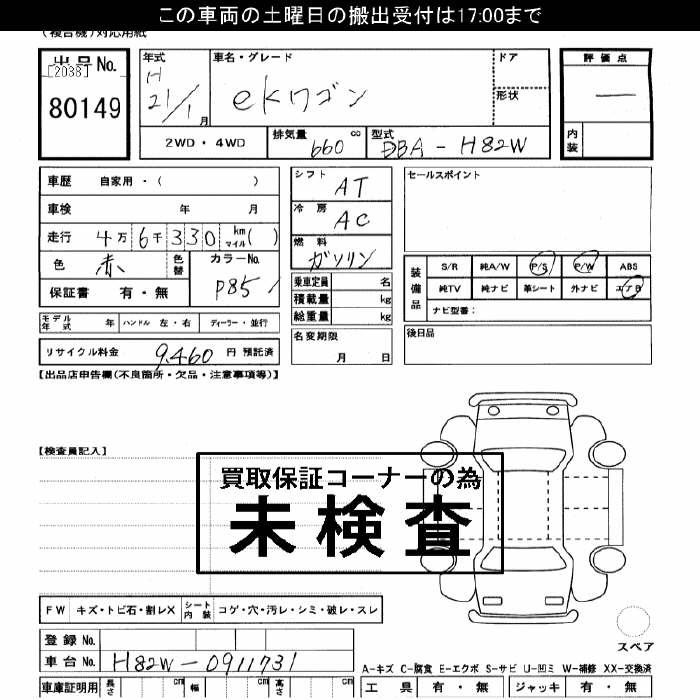 この車両の土曜日の搬出受付は17:00まで
(複合機)対応用紙
出品No.
[2038]
80149
年式
H
21/1月
車名・グレード
ekワゴン
ドア
形状
評価点
—
内装
2WD・4WD
排気量
660 cc
型式
DBA-H82W
車歴 自家用・( )
車検 年 月
走行 4万6千330 km マイル( )
色 赤 色替
カラーNo.
P85
保証書 有・無
シフト
AT
冷房
AC
燃料
ガソリン
乗車定員 名
積載量 kg
総重量 kg
セールスポイント
装備品
S/R 純A/W P/S P/W ABS
純TV 純ナビ 革シート 外ナビ エアB
ナビ型番:
モデル年式 年 ハンドル 左・右 ディーラー・並行
名変期限
月 日
後日品
リサイクル料金 9,460 円 預託済
【出品店申告欄(不良箇所・欠品・注意事項等)】
【検査員記入】
買取保証コーナーの為
未検査
FW キズ・トビ石・割レX シート内装 コゲ・穴・汚レ・シミ・破レ・スレ
スペア
登録No.
車台No. H82W-0911731
A-キズ C-腐食 E-エクボ S-サビ U-凹ミ W-補修 XX-交換済
車庫証明用 長さ cm 幅 cm 高さ cm
工具 有・無 ジャッキ 有・無